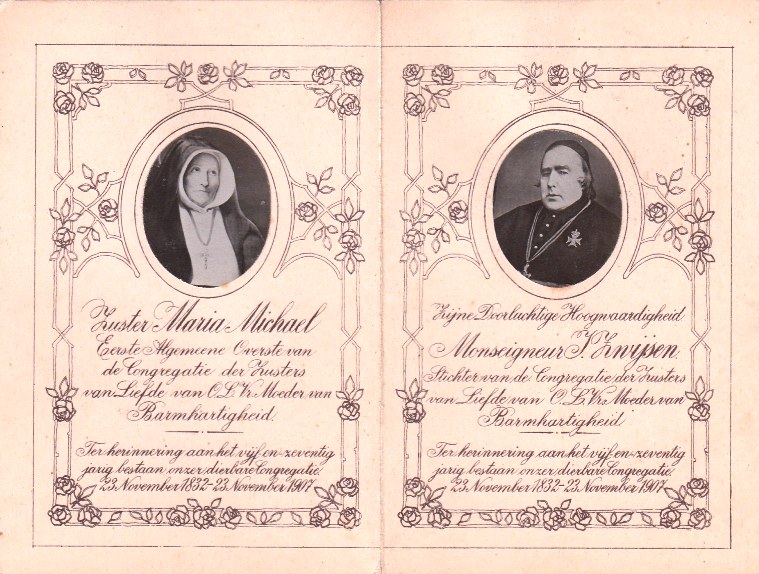 Zuster Maria Michael
Eerste Algemeene Overste van
de Congregatie der Zusters
van Liefde van O.L.Vr. Moeder van
Barmhartigheid.
Ter herinnering aan het vijf en zeventig
jarig bestaan onzer dierbare Congregatie.
23 November 1832-23 November 1907.
Zijne Doorluchtige Hoogwaardigheid
Monseigneur J. Zwijsen.
Stichter van de Congregatie der Zusters
van Liefde van O.L.Vr. Moeder van
Barmhartigheid
Ter herinnering aan het vijf en zeventig
jarig bestaan onzer dierbare Congregatie.
23 November 1832-23 November 1907.